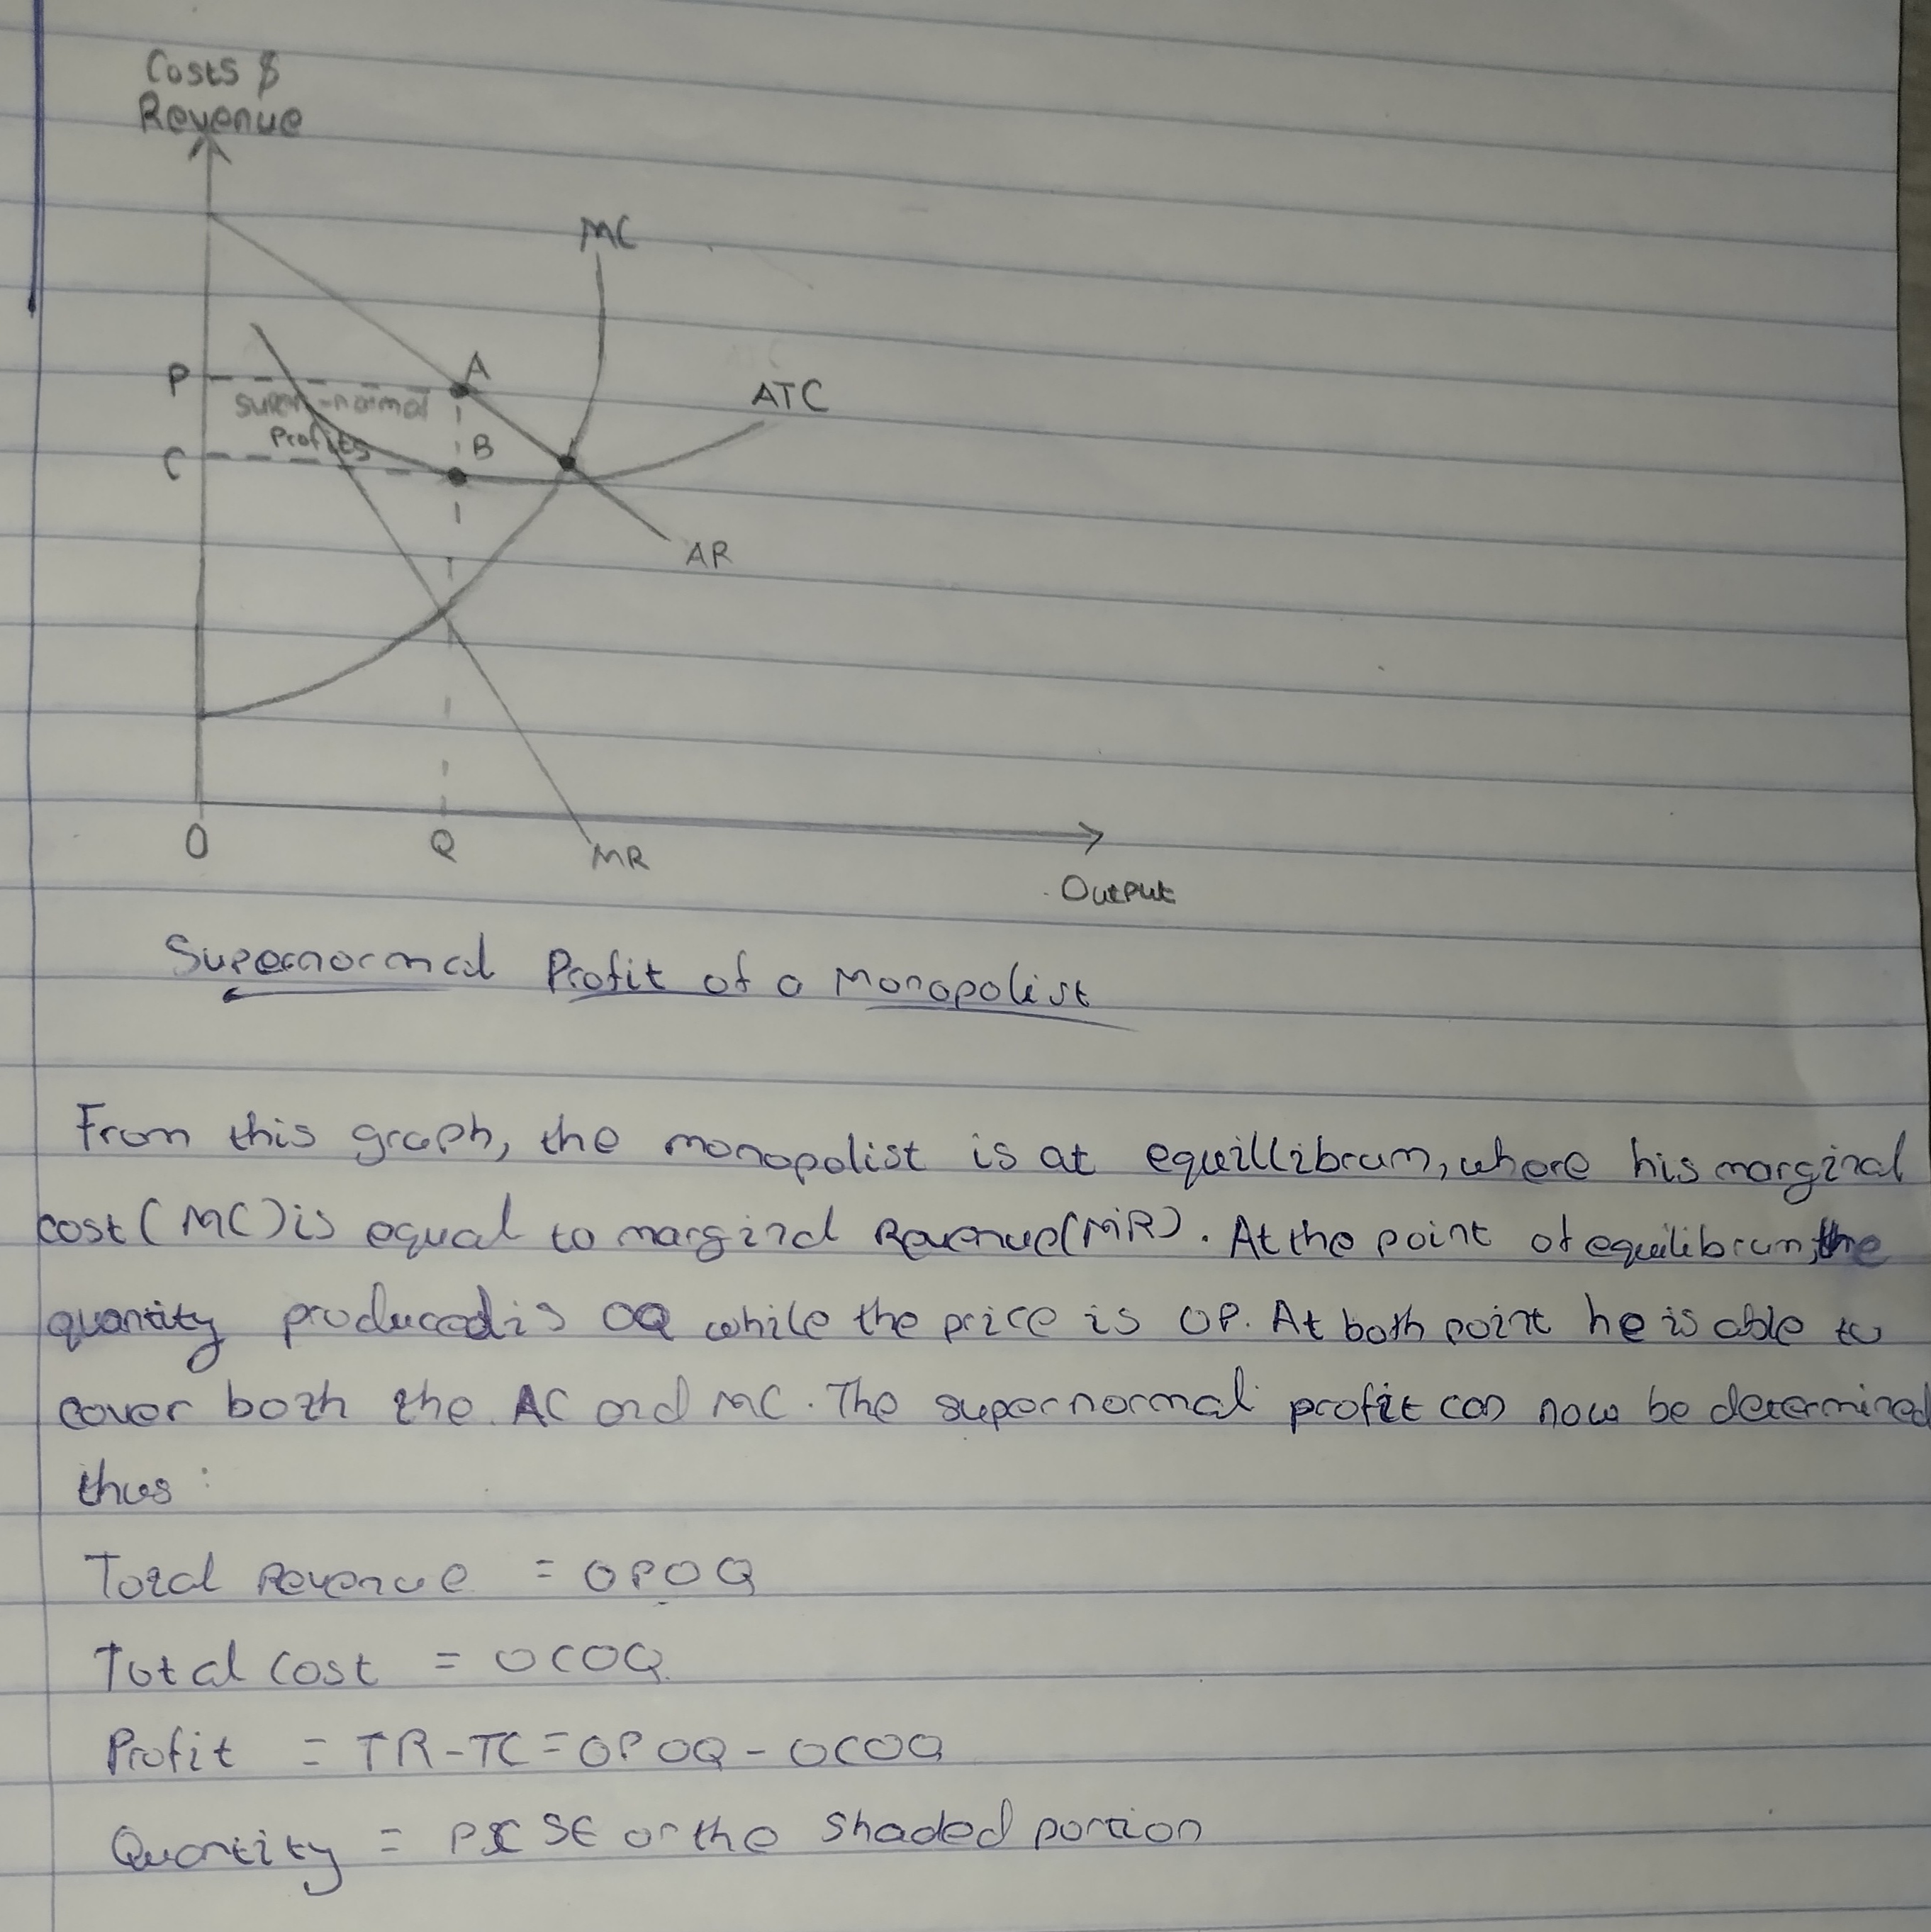 Costs $
Revenue
MC
P
A
ATC
super-normal
Profits
B
C
AR
O
Q
MR
Output
Supernormal Profit of a Monopolist
From this graph, the monopolist is at equillibrum, where his marginal
cost (MC) is equal to marginal Revenue (MR). At the point of equilibrum, the
quantity produced is OQ while the price is OP. At both point he is able to
cover both the AC and MC. The supernormal profit can now be determined
thus:
Total Revenue = OPOQ
Total Cost = OCOQ
Profit = TR-TC = OPOQ - OCOQ
Quantity = SE or the shaded portion